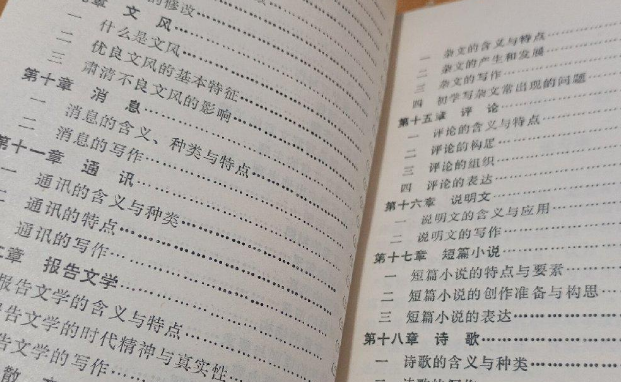 的修改
章 文 风
一 什么是文风
二 优良文风的基本特征
三 肃清不良文风的影响
第十章 消 息
一 消息的含义、种类与特点
二 消息的写作
十一章 通 讯
通讯的含义与种类
通讯的特点
通讯的写作
章 报告文学
报告文学的含义与特点
告文学的时代精神与真实性
告文学的写作
散
一 杂文的含义与特点
二 杂文的产生和发展
三 杂文的写作
四 初学写杂文常出现的问题
第十五章 评 论
一 评论的含义与特点
二 评论的构思
三 评论的组织
四 评论的表达
第十六章 说明文
一 说明文的含义与应用
二 说明文的写作
第十七章 短篇小说
一 短篇小说的特点与要素
二 短篇小说的创作准备与构思
三 短篇小说的表达
第十八章 诗 歌
一 诗歌的含义与种类